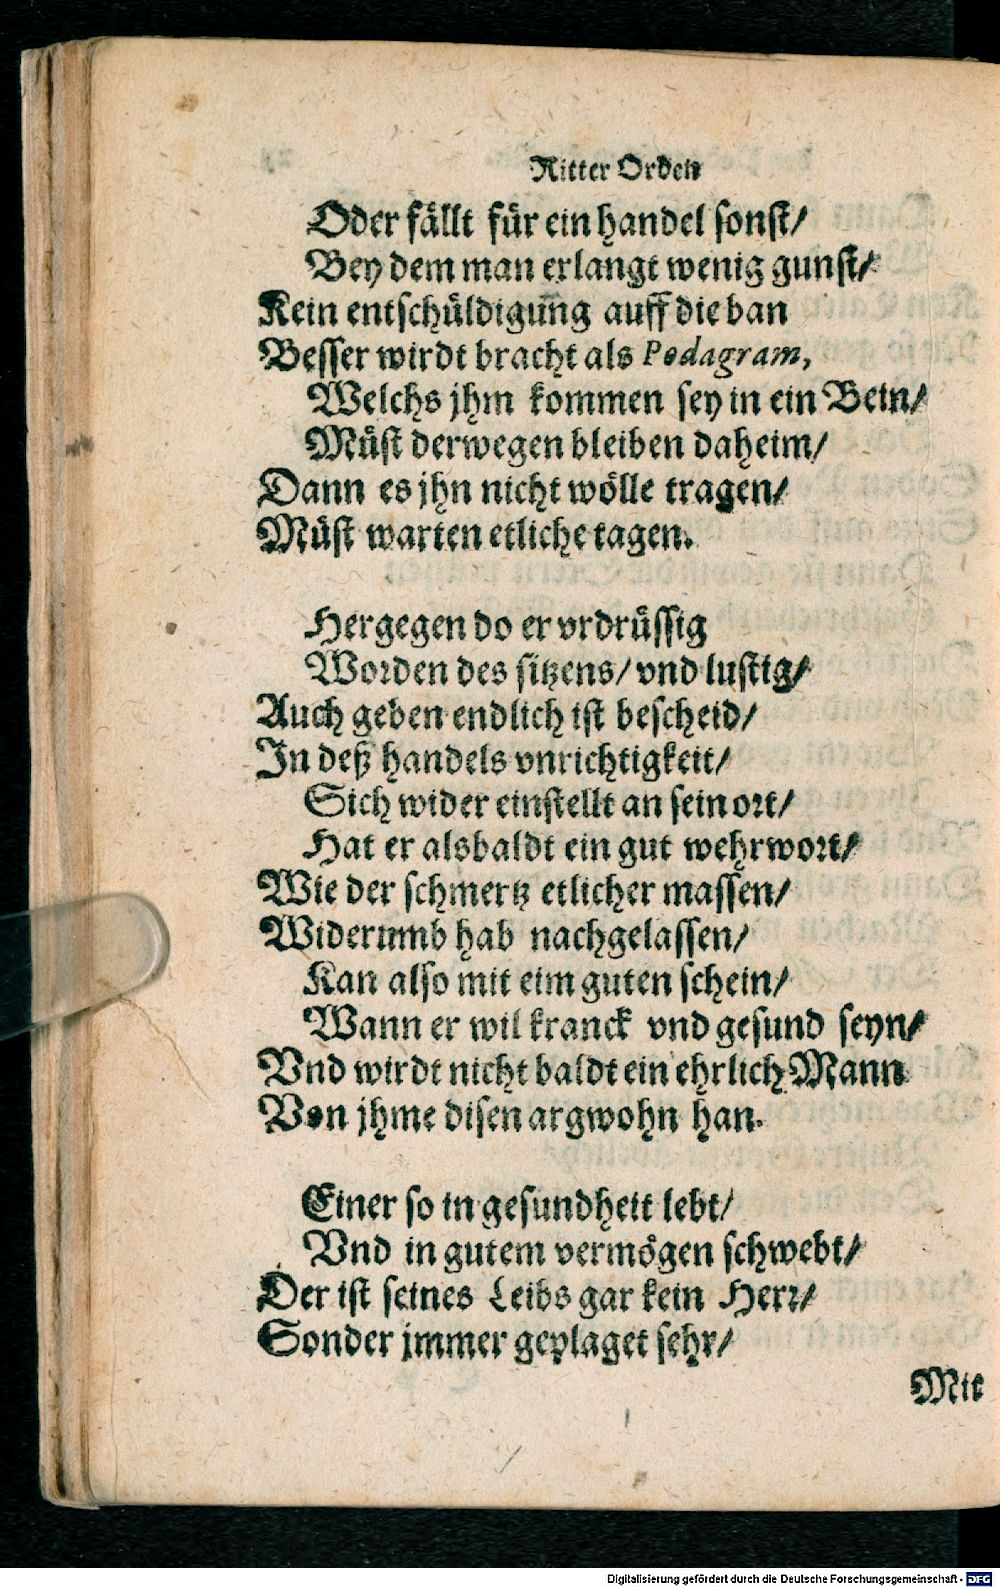 Ritter Orden
Oder fällt für ein handel sonst/
Bey dem man erlangt wenig gunst/
Kein entschüldigung̅ auff die ban
Besser wirdt bracht als Podagram,
Welchs jhm kommen sey in ein Bein/
Müst derwegen bleiben daheim/
Dann es jhn nicht wölle tragen/
Müst warten etliche tagen.
Hergegen do er vrdrüssig
Worden des sitzens/ vnd lustig/
Auch geben endlich ist bescheid/
In deß handels vnrichtigkeit/
Sich wider einstellt an sein ort/
Hat er alsbaldt ein gut wehrwort/
Wie der schmertz etlicher massen/
Widerumb hab nachgelassen/
Kan also mit eim guten schein/
Wann er wil kranck vnd gesund seyn/
Vnd wirdt nicht baldt ein ehrlich Mann
Von jhme disen argwohn han.
Einer so in gesundheit lebt/
Vnd in gutem vermögen schwebt/
Der ist seines Leibs gar kein Herr/
Sonder jmmer geplaget sehr/
Mit
Digitalisierung gefördert durch die Deutsche Forschungsgemeinschaft - DFG